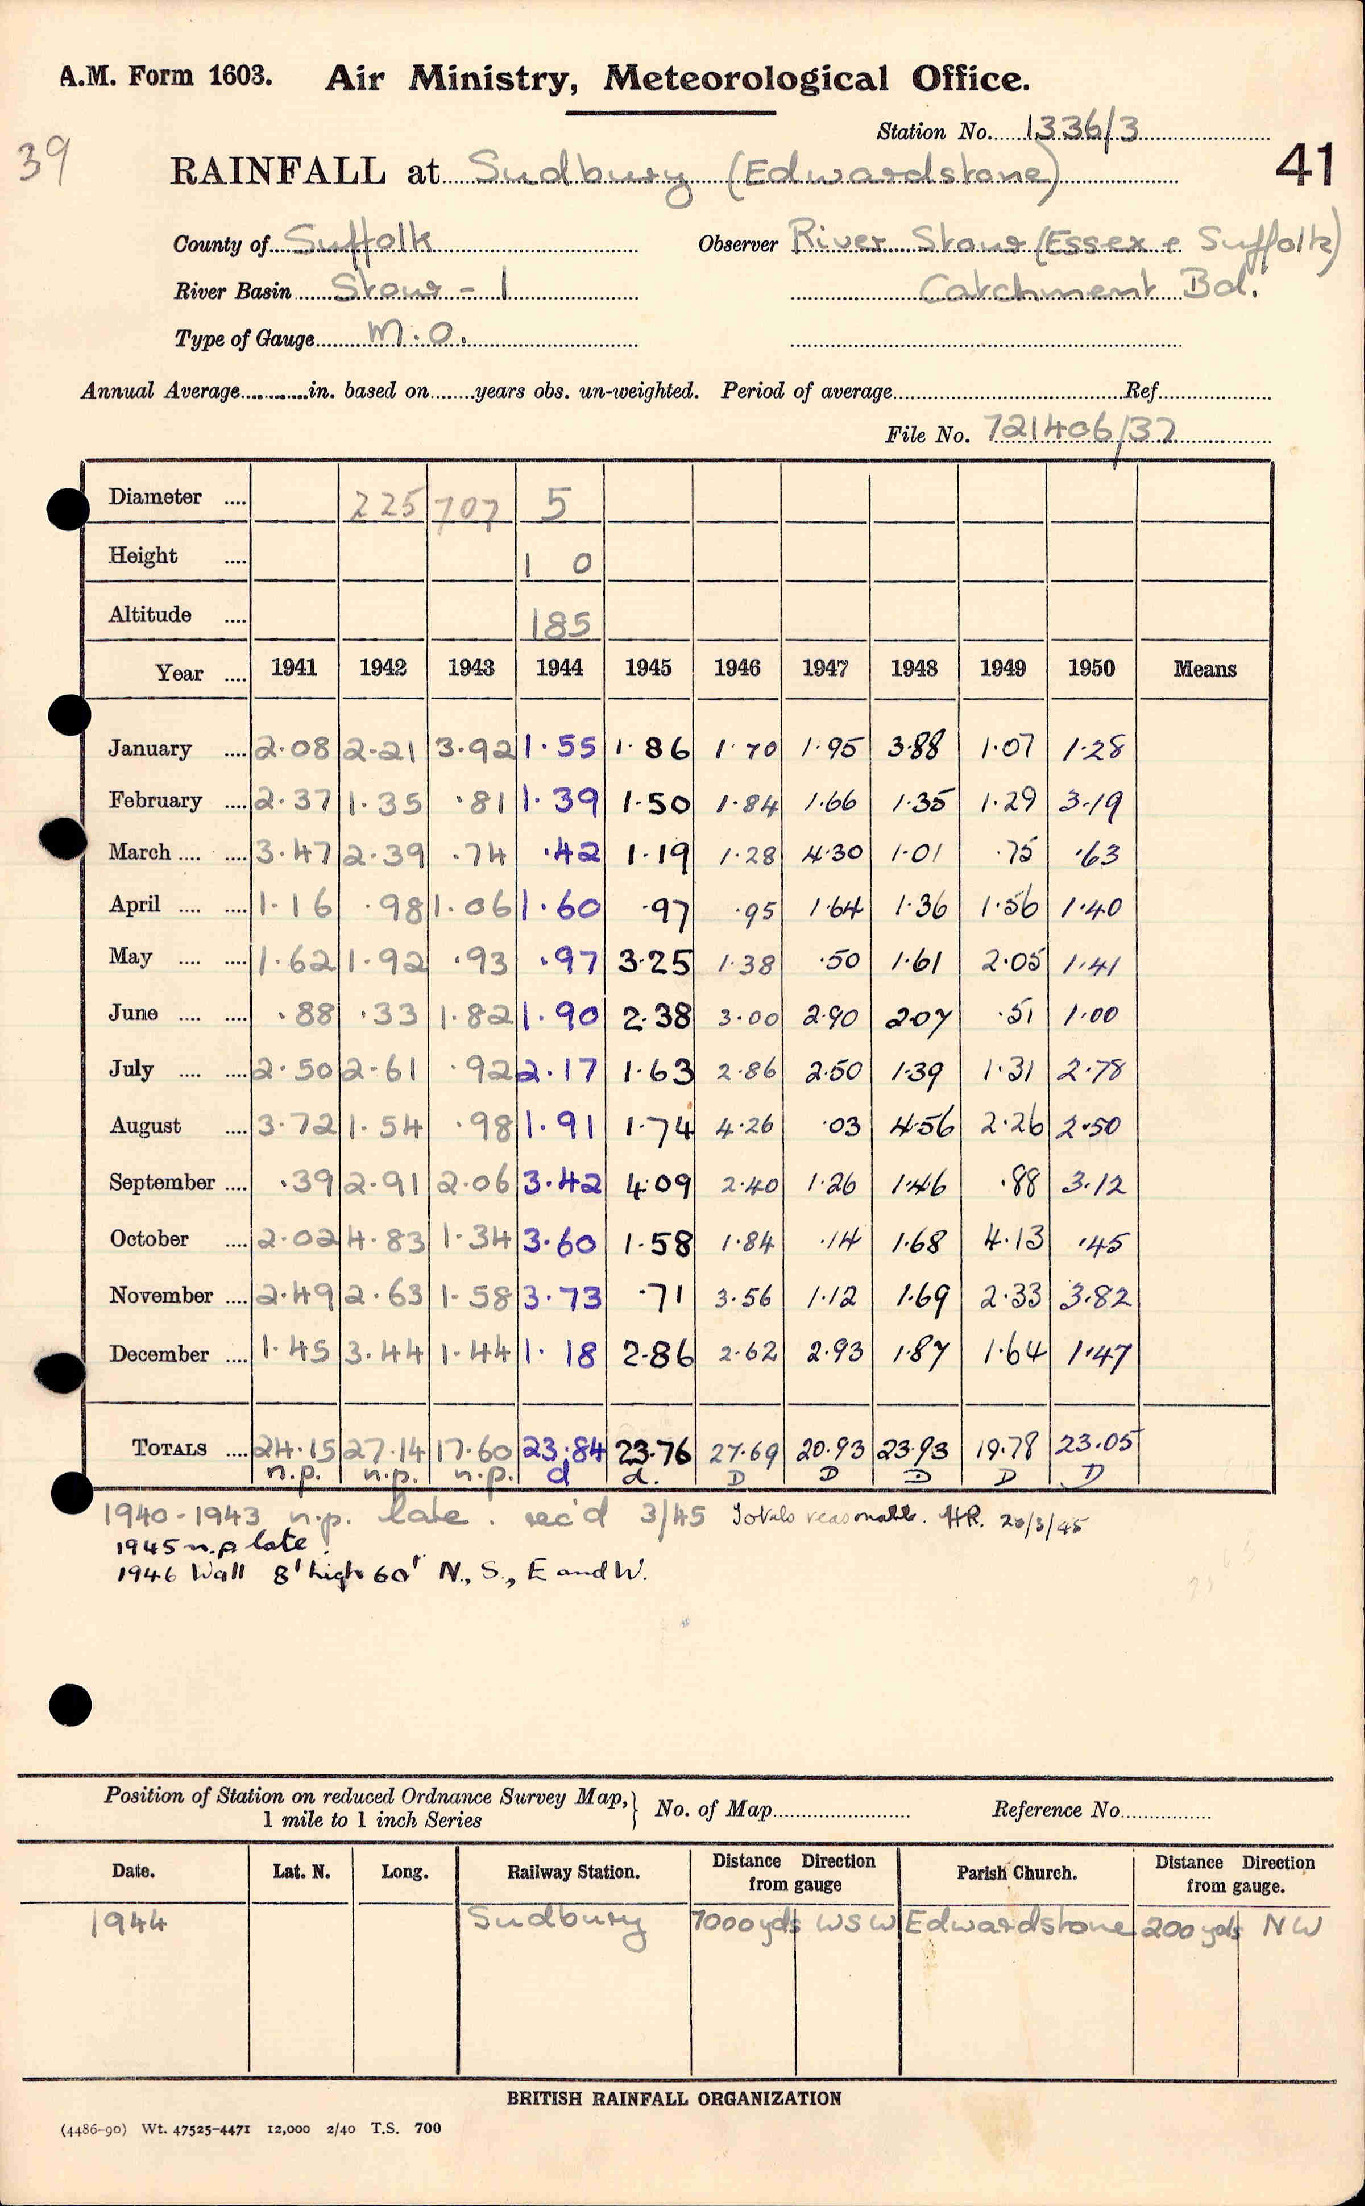 A.M. Form 1603. Air Ministry, Meteorological Office.
Station No. 1336/3
39
RAINFALL at Sudbury (Edwardstone)
41
County of Suffolk Observer River Stour (Essex & Suffolk)
River Basin Stour - 1 Catchment Bd.
Type of Gauge M.O.
Annual Average in. based on years obs. un-weighted. Period of average Ref
File No. 721406/37
Diameter 225 707 5
Height 1 0
Altitude 185
Year 1941 1942 1943 1944 1945 1946 1947 1948 1949 1950 Means
January 2.08 2.21 3.92 1.55 1.86 1.70 1.95 3.88 1.07 1.28
February 2.37 1.35 .81 1.39 1.50 1.84 1.66 1.35 1.29 3.19
March 3.47 2.39 .74 .42 1.19 1.28 4.30 1.01 .75 .63
April 1.16 .98 1.06 1.60 .97 .95 1.64 1.36 1.56 1.40
May 1.62 1.92 .93 .97 3.25 1.38 .50 1.61 2.05 1.41
June .88 .33 1.82 1.90 2.38 3.00 2.90 2.07 .51 1.00
July 2.50 2.61 .92 2.17 1.63 2.86 2.50 1.39 1.31 2.78
August 3.72 1.54 .98 1.91 1.74 4.26 .03 4.56 2.26 2.50
September .39 2.91 2.06 3.42 4.09 2.40 1.26 1.46 .88 3.12
October 2.02 4.83 1.34 3.60 1.58 1.84 .14 1.68 4.13 .45
November 2.49 2.63 1.58 3.73 .71 3.56 1.12 1.69 2.33 3.82
December 1.45 3.44 1.44 1.18 2.86 2.62 2.93 1.87 1.64 1.47
TOTALS 24.15 27.14 17.60 23.84 23.76 27.69 20.93 23.93 19.78 23.05
n.p. n.p. n.p. d d. D D D D D
1940-1943 n.p. late. rec'd 3/45 Totals reasonable. HR. 20/3/45
1945 n.p late.
1946 Wall 8' high 60' N., S., E and W.
Position of Station on reduced Ordnance Survey Map, 1 mile to 1 inch Series } No. of Map Reference No.
Date. Lat. N. Long. Railway Station. Distance Direction from gauge Parish Church. Distance Direction from gauge.
1944 Sudbury 7000 yds WSW Edwardstone 200 yds NW
BRITISH RAINFALL ORGANIZATION
(4486-90) Wt. 47525-4471 12,000 2/40 T.S. 700